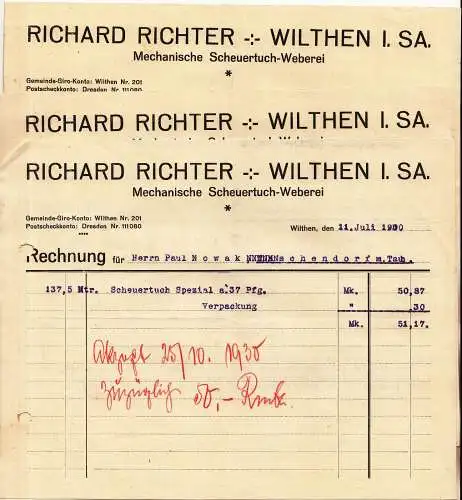 RICHARD RICHTER -:- WILTHEN I. SA.
Mechanische Scheuertuch-Weberei
*
Gemeinde-Giro-Konto: Wilthen Nr. 201
Postscheckkonto: Dresden Nr. 111080
RICHARD RICHTER -:- WILTHEN I. SA.
RICHARD RICHTER -:- WILTHEN I. SA.
Mechanische Scheuertuch-Weberei
*
Gemeinde-Giro-Konto: Wilthen Nr. 201
Postscheckkonto: Dresden Nr. 111080
Wilthen, den 11. Juli 1930
Rechnung für Herrn Paul Nowak
137,5 Mtr. Scheuertuch Spezial a.37 Pfg. Mk. 50,87
Verpackung " .30
Mk. 51,17.
Akzept 25/10. 1930
zuzüglich 50,-